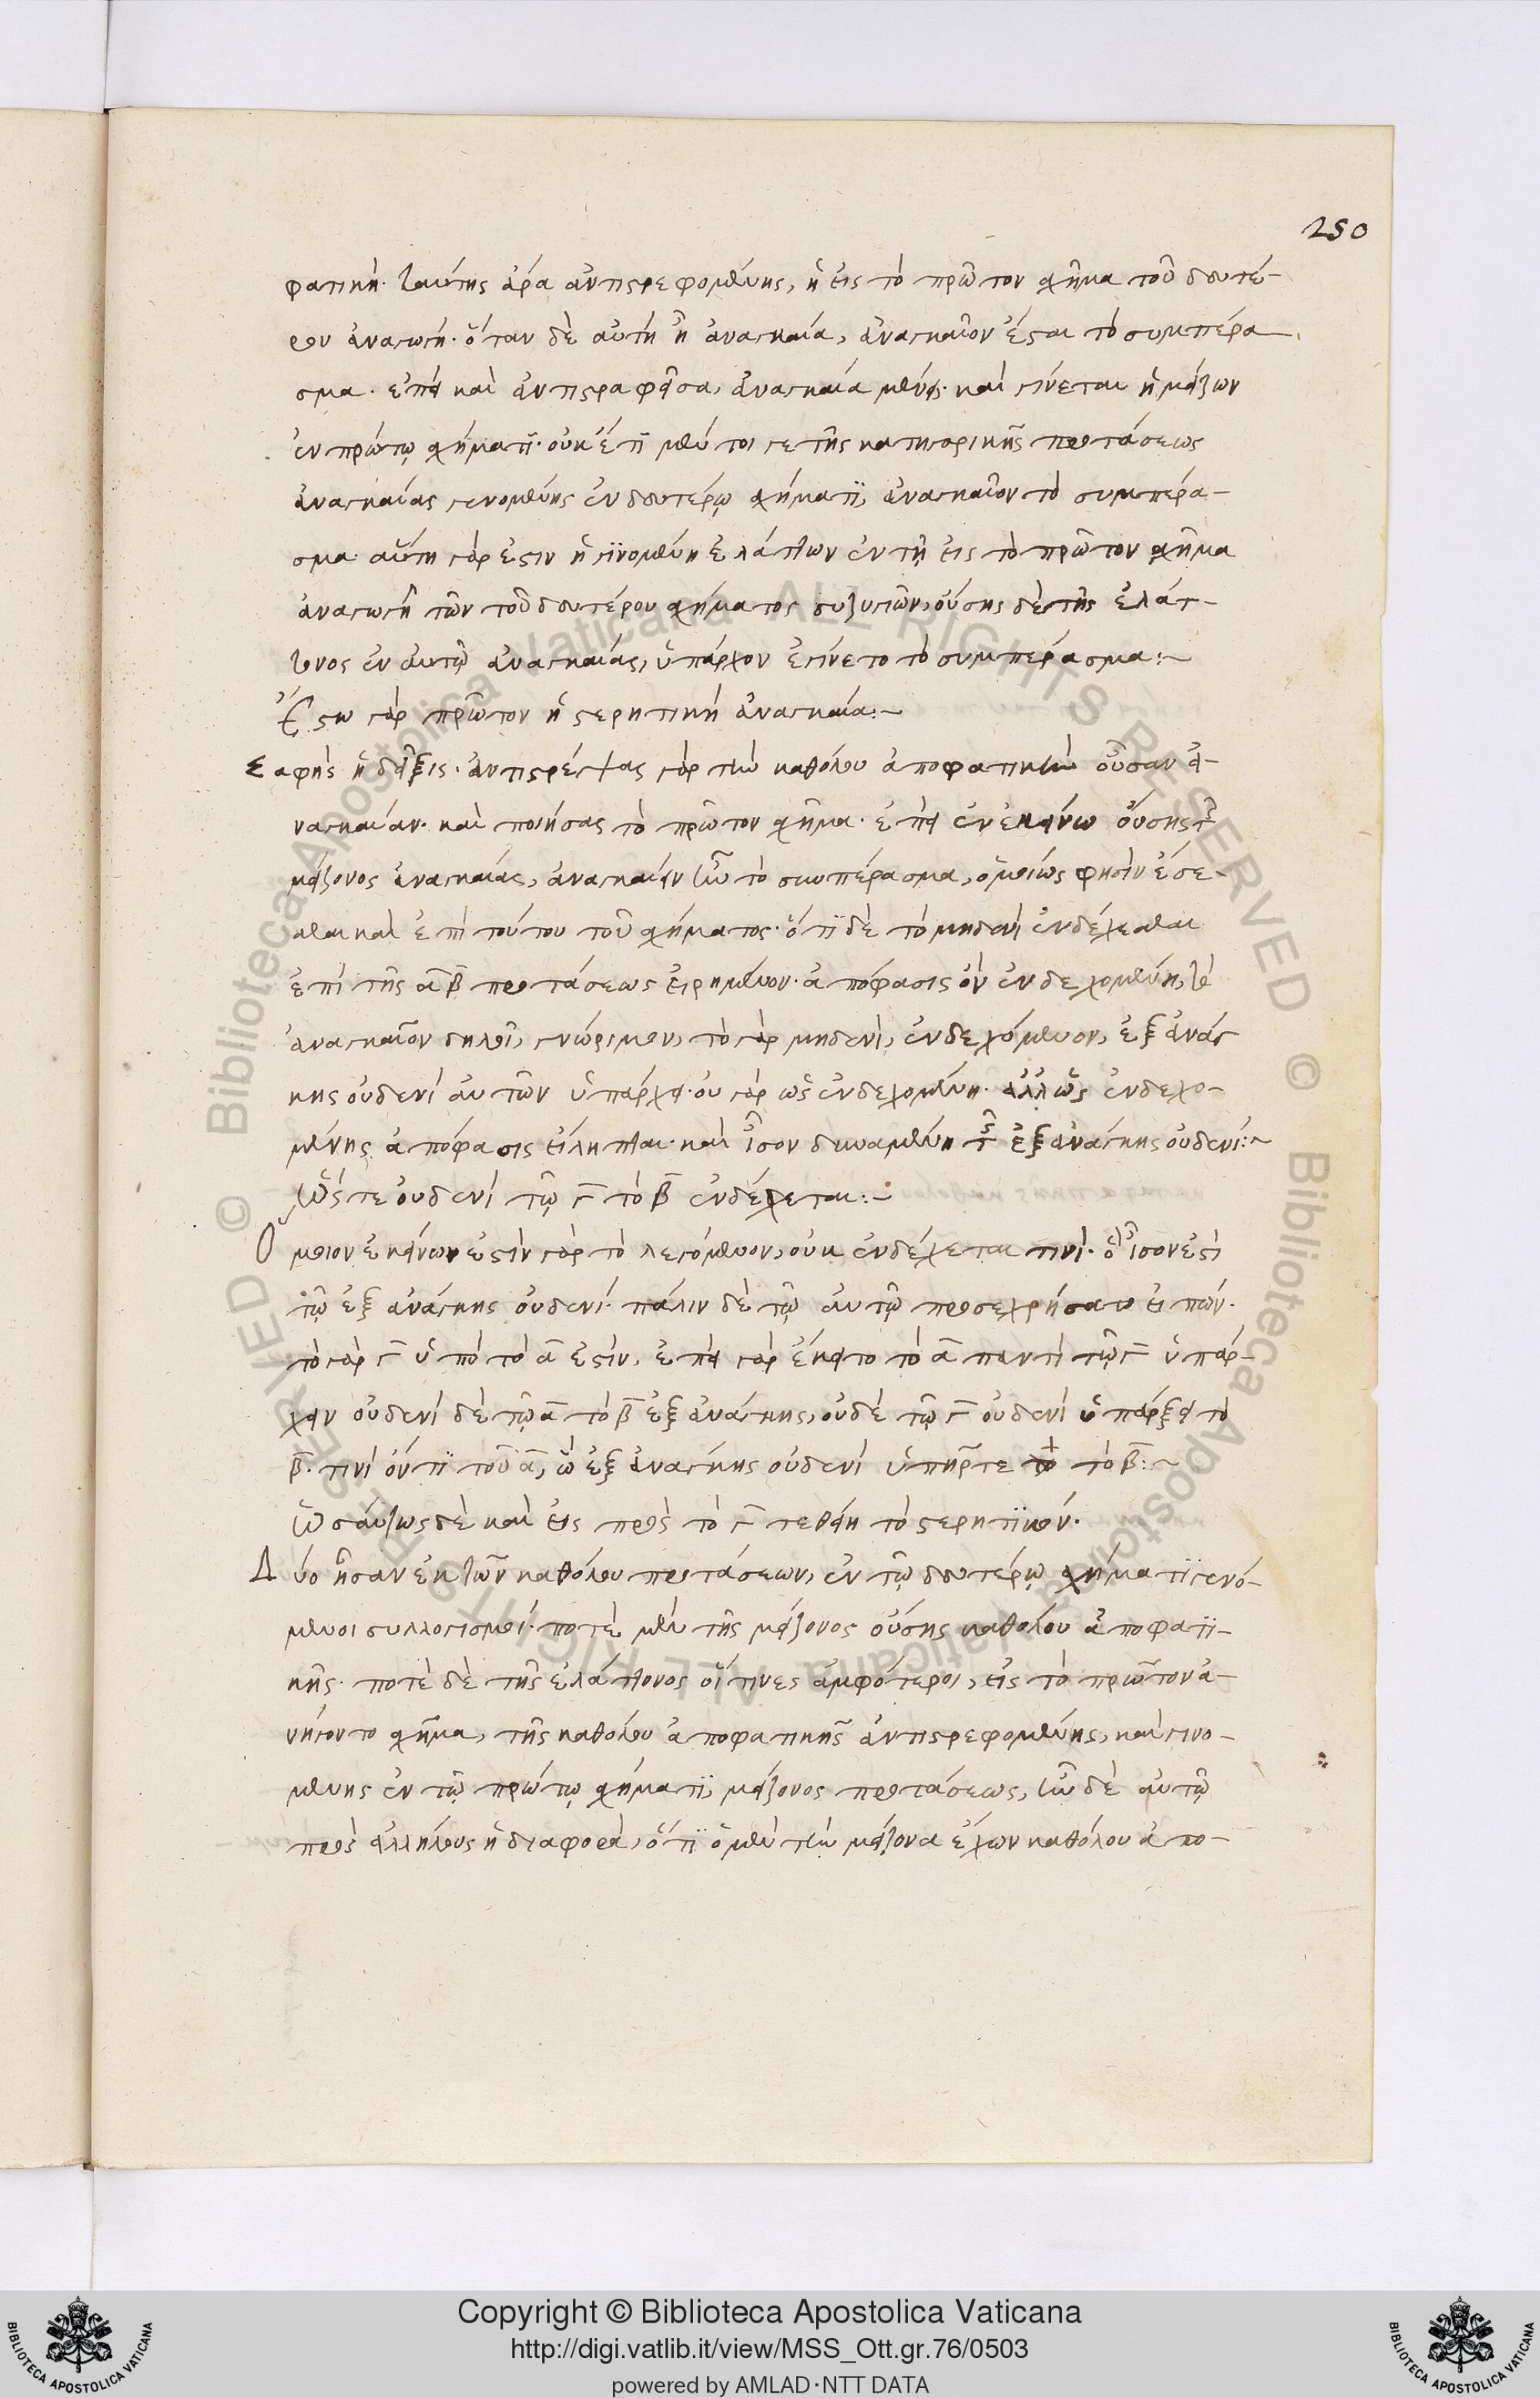 250
φατική· ταύτης ἄρα ἀντιστρεφομένης, ἡ εἰς τὸ πρῶτον σχῆμα τοῦ δευτέ-
ρου ἀναγωγή· ὅταν δὲ αὐτὴ ᾖ ἀναγκαία, ἀναγκαῖον ἔσται τὸ συμπέρα
σμα· ἐπεὶ καὶ ἀντιστραφεῖσα, ἀναγκαία μένει· καὶ γίνεται ἡ μείζων
ἐν πρώτῳ σχήματι· οὐκέτι μέντοι γε τῆς κατηγορικῆς προτάσεως
ἀναγκαίας γενομένης ἐν δευτέρῳ σχήματι, ἀναγκαῖον τὸ συμπέρα-
σμα· αὕτη γάρ ἐστιν ἡ γινομένη ἐλάττων ἐν τῇ εἰς τὸ πρῶτον σχῆμα
ἀναγωγῇ τῶν τοῦ δευτέρου σχήματος συζυγιῶν, οὔσης δὲ τῆς ἐλάτ-
τονος ἐν αὐτῷ ἀναγκαίας, ὑπάρχον ἐγίνετο τὸ συμπέρασμα:~
Ἔστω γὰρ πρῶτον ἡ στερητικὴ ἀναγκαία:~
Σαφὴς ἡ δεῖξις· ἀντιστρέψας γὰρ τὴν καθόλου ἀποφατικὴν οὖσαν ἀ-
ναγκαίαν· καὶ ποιήσας τὸ πρῶτον σχῆμα· ἐπεὶ ἐν ἐκείνῳ οὔσης τῆς
μείζονος ἀναγκαίας, ἀναγκαῖον ἦν τὸ συμπέρασμα, ὁμοίως φησὶν ἔσε-
σθαι καὶ ἐπὶ τούτου τοῦ σχήματος· ὅτι δὲ τὸ μηδενὶ ἐνδέχεσθαι
ἐπὶ τῆς α β προτάσεως εἰρημένον· ἀπόφασις ὂν ἐνδεχομένη, τὸ
ἀναγκαῖον δηλοῖ, γνώριμον, τὸ γὰρ μηδενὶ, ἐνδεχόμενον, ἐξ ἀνάγ
κης οὐδενὶ αὐτῶν ὑπάρχει· οὐ γὰρ ὡς ἐνδεχομένη· ἀλλ' ὡς ἐνδεχο-
μένης ἀπόφασις εἴληπται· καὶ ἴσον δυναμένη τῇ ἐξ ἀνάγκης οὐδενί:~
Ὥστε οὐδενὶ τῷ γ τὸ β ἐνδέχεται:~
Ὅμοιον ἐκείνων ἐστὶν γὰρ τὸ λεγόμενον, οὐκ ἐνδέχεται τινί· ὃ ἴσον ἐστὶ
τῷ ἐξ ἀνάγκης οὐδενί· πάλιν δὲ τῷ αὐτῷ προσεχρήσατο εἰπών·
τὸ γὰρ γ ὑπὸ τὸ α ἐστὶν, ἐπεὶ γὰρ ἔκειτο τὸ α παντὶ τῷ γ ὑπάρ-
χειν οὐδενὶ δὲ τῷ α τὸ β ἐξ ἀνάγκης, οὐδὲ τῷ γ οὐδενὶ ὑπάρξει τὸ
β· τινὶ ὄντι τοῦ α, ᾧ ἐξ ἀνάγκης οὐδενὶ ὑπῆρχε τὸ β:~
Ὡσαύτως δὲ καὶ εἰ πρὸς τὸ γ τεθείη τὸ στερητικόν·
Δύο ἦσαν ἐκ τῶν καθόλου προτάσεων, ἐν τῷ δευτέρῳ σχήματι γενό-
μενοι συλλογισμοί· ποτὲ μὲν τῆς μείζονος οὔσης καθόλου ἀποφατι-
κῆς· ποτὲ δὲ τῆς ἐλάττονος οἵτινες ἀμφότεροι, εἰς τὸ πρῶτον ἀ-
νήγοντο σχῆμα, τῆς καθόλου ἀποφατικῆς ἀντιστρεφομένης, καὶ γινο-
μένης ἐν τῷ πρώτῳ σχήματι, μείζονος προτάσεως, ἦν δὲ αὐτῷ
πρὸς ἀλλήλους ἡ διαφορὰ, ὅτι ὁ μὲν τὴν μείζονα ἔχων καθόλου ἀπο-
Copyright © Biblioteca Apostolica Vaticana
http://digi.vatlib.it/view/MSS_Ott.gr.76/0503
powered by AMLAD·NTT DATA